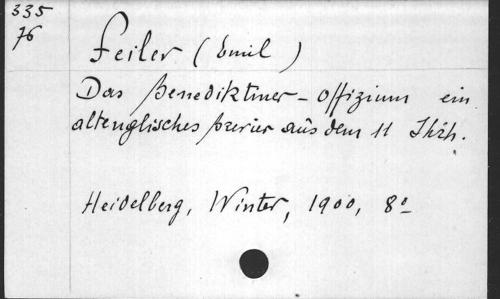 335
76
Feiler (Emil)
Das Benediktiner-Offizium ein
altenglisches Brevier aus dem 11 Jhrh.
Heidelberg, Winter, 1900, 8º